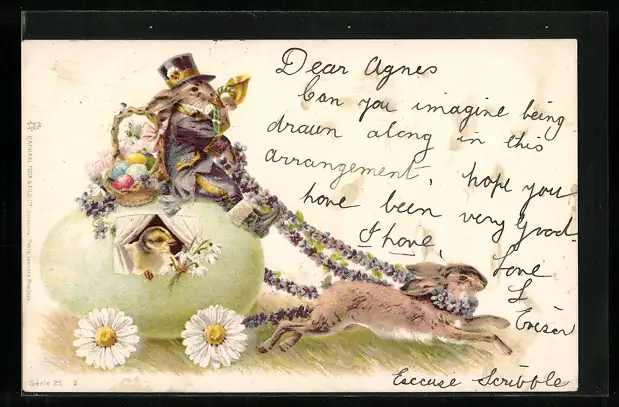 Dear Agnes
Can you imagine being
drawn along in this
arrangement, hope you
have been very good.
I have.
Love
L
Escuse Scribble
RAPHAEL TUCK & FILS
Série 25 2